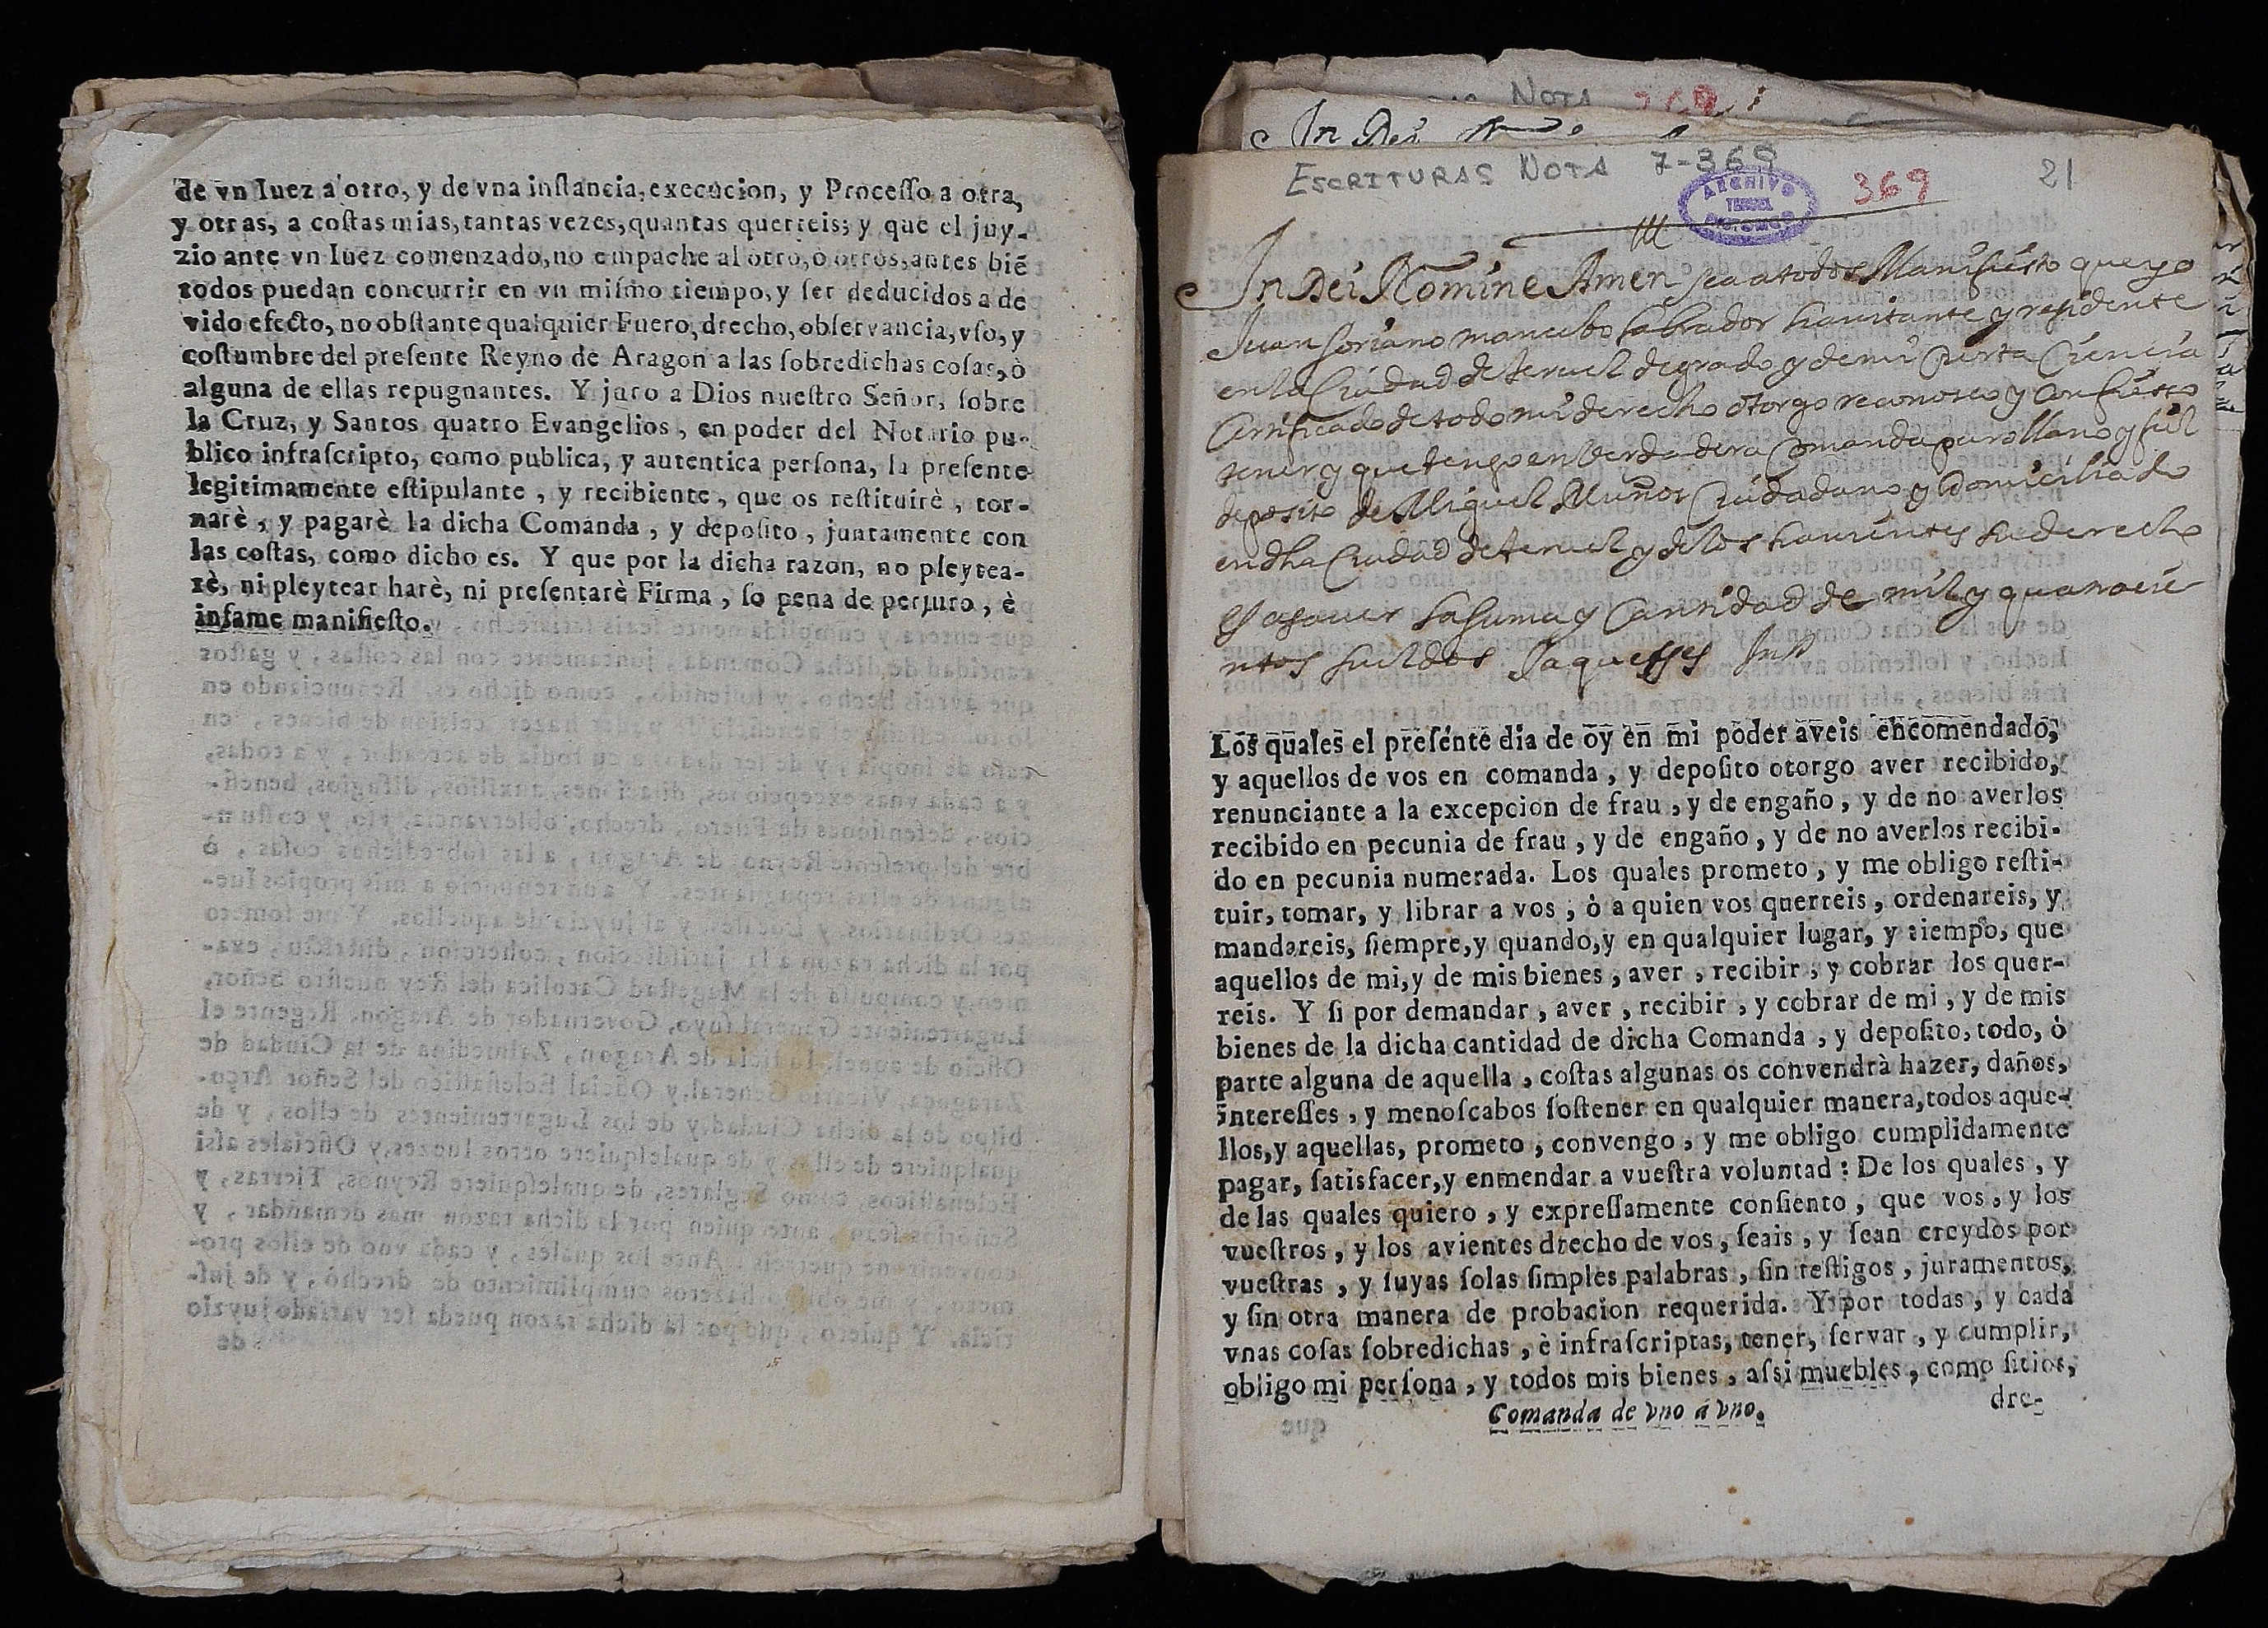 de vn Iuez a otro, y de vna inſtancia, execucion, y Proceſſo a otra,
y otras, a coſtas mias, tantas vezes, quantas querreis; y que el juy-
zio ante vn Iuez comenzado, no empache al otro, ò otros, antes bie͂
todos puedan concurrir en vn miſmo tiempo, y ſer deducidos a de
vido efecto, no obſtante qualquier Fuero, drecho, obſervancia, vſo, y
coſtumbre del preſente Reyno de Aragon a las ſobredichas coſas, ò
alguna de ellas repugnantes. Y juro a Dios nueſtro Señor, ſobre
la Cruz, y Santos quatro Evangelios, en poder del Notario pu-
blico infraſcripto, como publica, y autentica perſona, la preſente
legitimamente eſtipulante, y recibiente, que os reſtituirè, tor-
narè, y pagarè la dicha Comanda, y depoſito, juntamente con
las coſtas, como dicho es. Y que por la dicha razon, no pleytea-
rè, ni pleytear harè, ni preſentarè Firma, ſo pena de perjuro, è
infame manifieſto.
ESCRITURAS NOTA 7-369
ARCHIVO
TERUEL
369
21
In Dei Nomine Amen sea a todos Manifiesto que yo
Juan Soriano mancebo Labrador havitante y residente
en la Ciudad de teruel de grado y de mi cierta Ciencia
Certificado de todo mi derecho otorgo reconosco y confiesso
tener y que tengo en Verdadera Comanda puro llano y fiel
deposito de Miguel Muñoz Ciudadano y Domiciliado
en dha Ciudad de teruel y de los havientes su derecho
es a saver la suma y Cantidad de mil y quatrocie
ntos sueldos Jaquesses
Los quales el preſente dia de oy en mi poder aveis encomendado,
y aquellos de vos en comanda, y depoſito otorgo aver recibido,
renunciante a la excepcion de frau, y de engaño, y de no averlos
recibido en pecunia de frau, y de engaño, y de no averlos recibi-
do en pecunia numerada. Los quales prometo, y me obligo reſti-
tuir, tomar, y librar a vos, ò a quien vos querreis, ordenareis, y
mandareis, ſiempre, y quando, y en qualquier lugar, y tiempo, que
aquellos de mi, y de mis bienes, aver, recibir, y cobrar los quer-
reis. Y ſi por demandar, aver, recibir, y cobrar de mi, y de mis
bienes de la dicha cantidad de dicha Comanda, y depoſito, todo, ò
parte alguna de aquella, coſtas algunas os convendrà hazer, daños,
intereſſes, y menoſcabos ſoſtener en qualquier manera, todos aque-
llos, y aquellas, prometo, convengo, y me obligo cumplidamente
pagar, ſatisfacer, y enmendar a vueſtra voluntad: De los quales, y
de las quales quiero, y expreſſamente conſiento, que vos, y los
vueſtros, y los avientes drecho de vos, ſeais, y ſean creydos por
vueſtras, y ſuyas ſolas ſimples palabras, ſin teſtigos, juramentos,
y ſin otra manera de probacion requerida. Y por todas, y cada
vnas coſas ſobredichas, è infraſcriptas, tener, ſervar, y cumplir,
obligo mi perſona, y todos mis bienes, aſsi muebles, como ſitios,
Comanda de vno á vno.
dre-